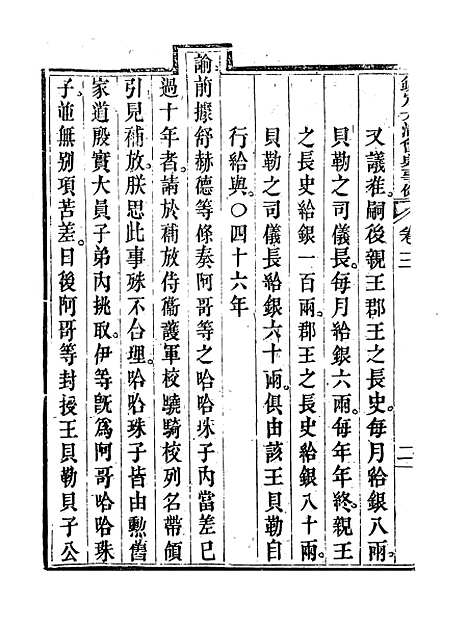 欽定大清會典事例 卷三
又議准嗣後親王郡王之長史每月給銀八兩
貝勒之司儀長每月給銀六兩每年年終親王
之長史給銀一百兩郡王之長史給銀八十兩
貝勒之司儀長給銀六十兩俱由該王貝勒自
行給與〇四十六年
諭前據舒赫德等條奏阿哥等之哈哈珠子內當差已
過十年者請於補放侍衞護軍校驍騎校列名帶領
引見補放朕思此事殊不合理哈哈珠子皆由勲舊
家道殷實大員子弟內挑取伊等旣爲阿哥哈哈珠
子並無別項苦差日後阿哥等封授王貝勒貝子公